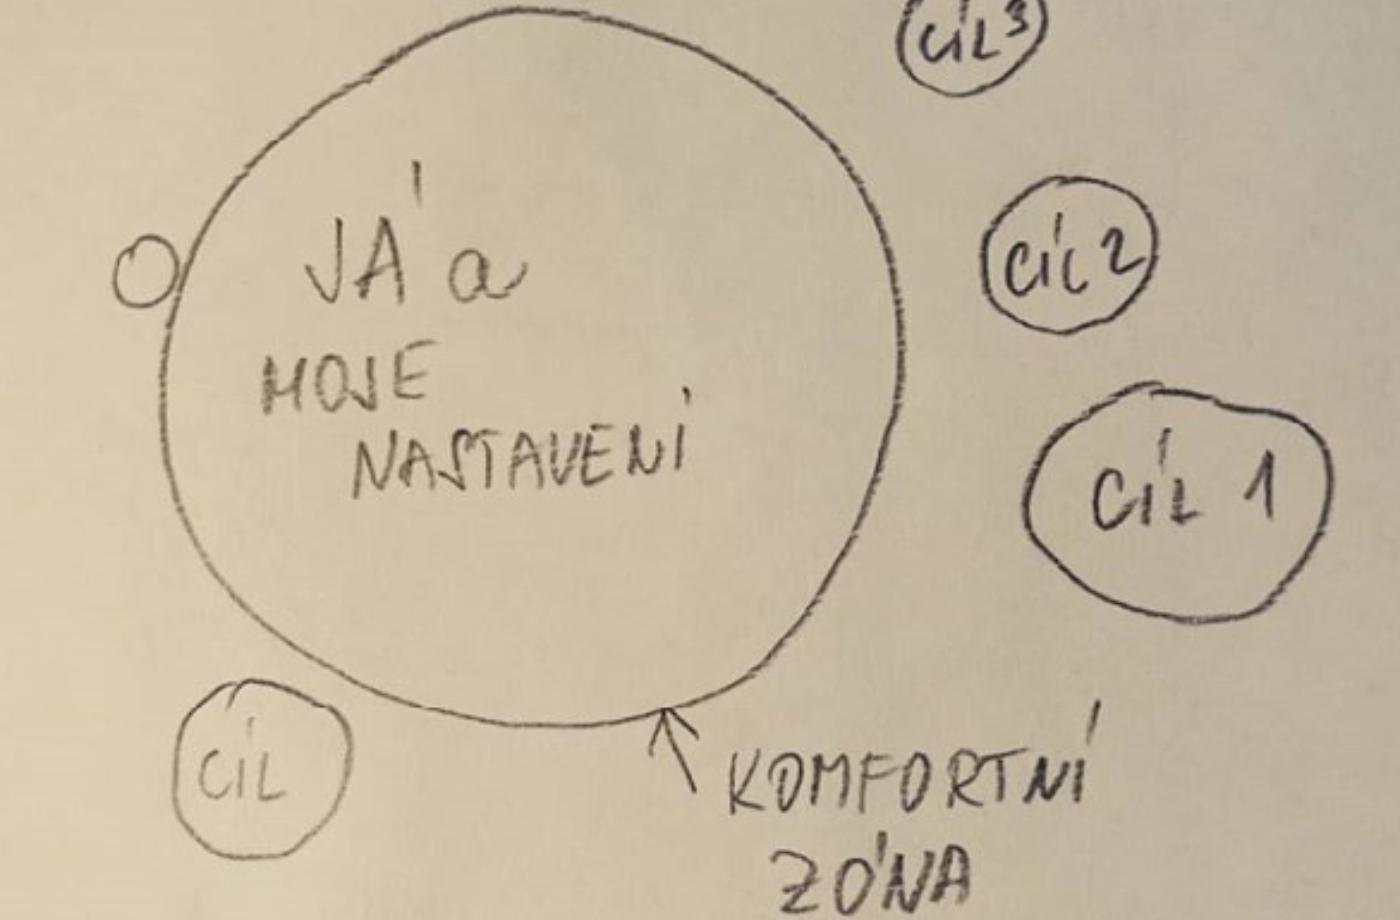 CÍL 3
CÍL 2
JÁ a
MOJE
NASTAVENÍ
CÍL 1
CÍL
KOMFORTNÍ
ZÓNA